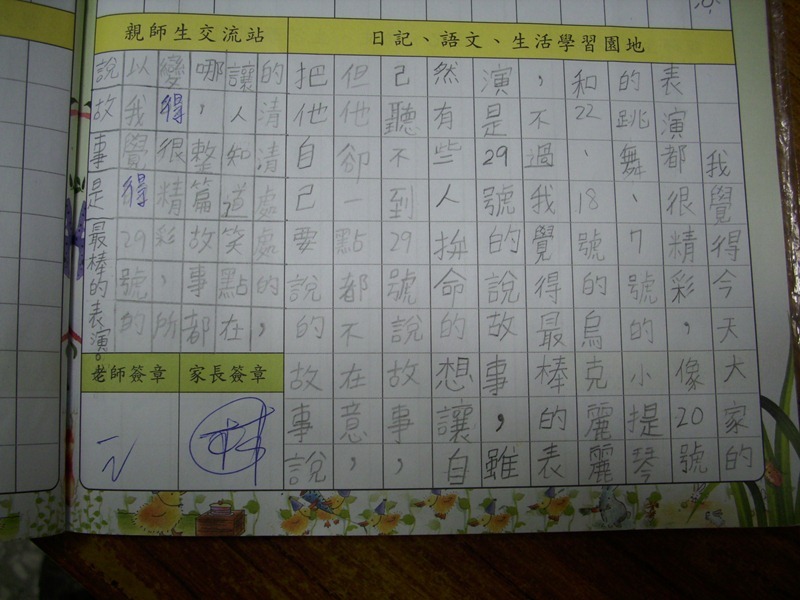 親師生交流站
日記、語文、生活學習園地
我覺得今天大家的
表演都很精彩，像20號
的跳舞、7號的小提琴
和22、18號的烏克麗麗
，不過我覺得最棒的表
演是29號的說故事，雖
然有些人拚命的想讓自
己聽不到29號說故事，
但他卻一點都不在意，
把他自己要說的故事說
的清清處處的，
讓人知道笑點在
哪，整篇故事都
變得很精彩，所
以我覺得29號的
說故事是最棒的表演。
老師簽章
家長簽章
林